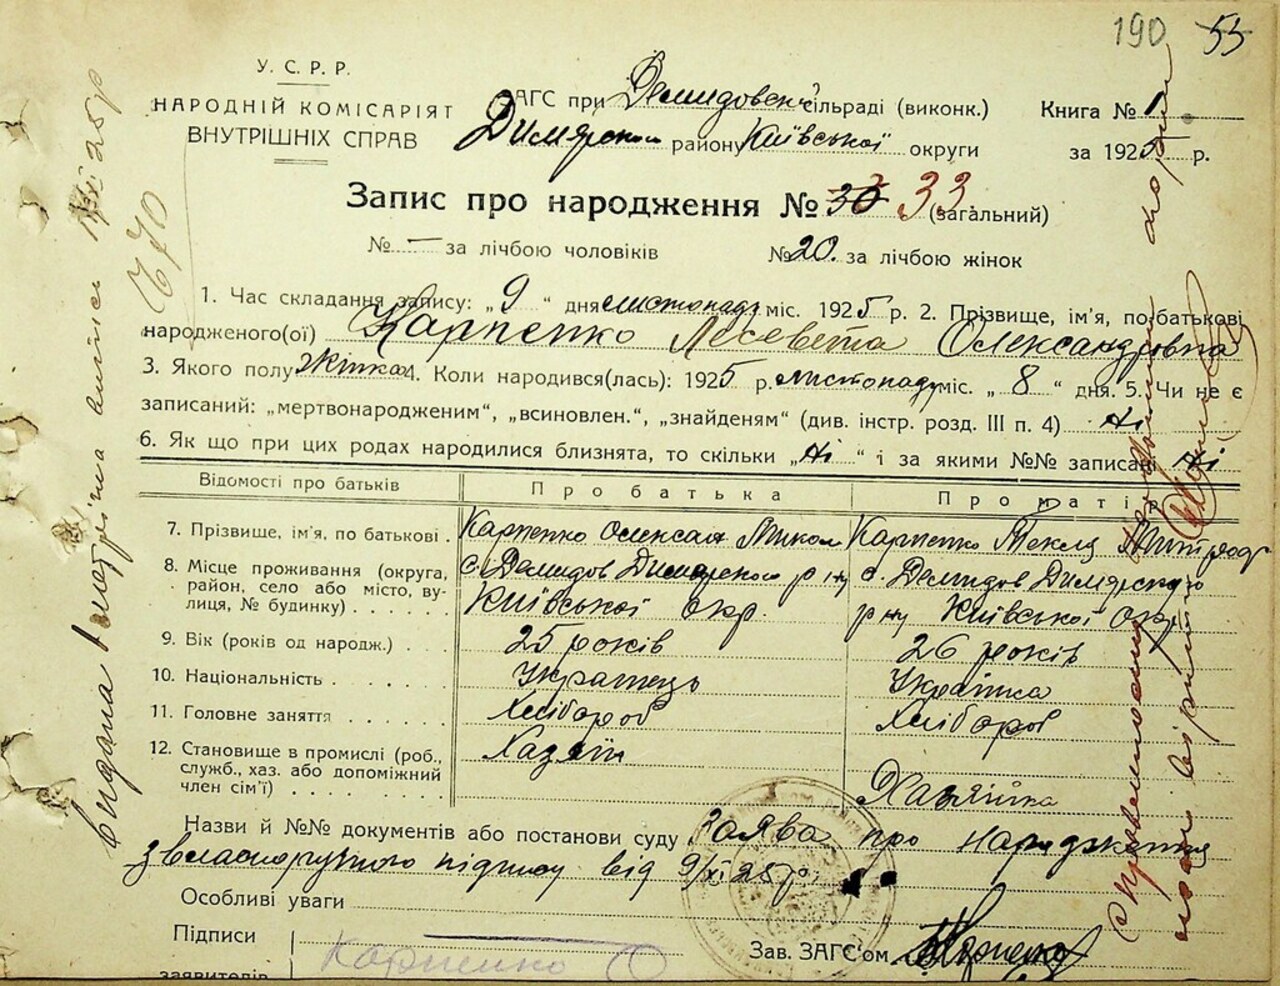 190 55
У. С. Р. Р.
НАРОДНІЙ КОМІСАРІЯТ
ВНУТРІШНІХ СПРАВ
ЗАГС при Демидовськ сільраді (виконк.)
Димярськом району Київської округи
Книга № 1
за 1925 р.
Запис про народження № 30 33 (загальний)
№ — за лічбою чоловіків № 20. за лічбою жінок
1. Час складання запису: „ 9 “ дня листопаду міс. 1925 р. 2. Прізвище, ім'я, по батькові
народженого(ої) Карпенко Лесевета Олександровна
3. Якого полу жінка 4. Коли народився(лась): 1925 р. листопаду міс. „ 8 “ дня. 5. Чи не є
записаний: „мертвонародженим“, „всиновлен.“, „знайденям“ (див. інстр. розд. III п. 4) Ні
6. Як що при цих родах народилися близнята, то скільки „ Ні “ і за якими №№ записані Ні
Відомості про батьків Про батька Про матір
7. Прізвище, ім'я, по батькові . Карпенко Олексай Микол Карпенко Текля Митроф
8. Місце проживання (округа, с. Демидов Димярського р-ну с. Демидов Димярського
район, село або місто, ву-
лиця, № будинку) Київської окр. р-ну Київської окр.
9. Вік (років од народж.) . 25 років 26 років
10. Національність Українець Українка
11. Головне заняття Хлібороб Хлібороб
12. Становище в промислі (роб., Хазяїн
служб., хаз. або допоміжний
член сім'ї) Хазяйка
Назви й №№ документів або постанови суду Заява про народження
з власноручного підпису від 9/XI 25 р.
Особливі уваги
Підписи
заявителів Карпенко О
Зав. ЗАГС'ом
Видана метрічна випись 25 р
670